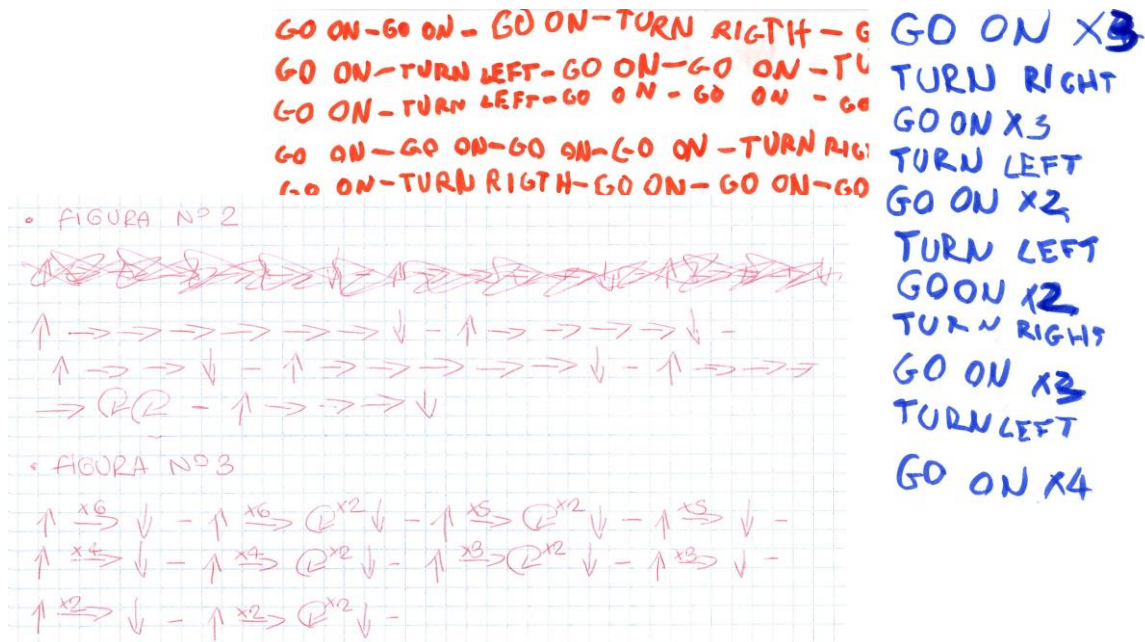 GO ON-GO ON- GO ON-TURN RIGTH - G
GO ON-TURN LEFT-GO ON-GO ON -TU
GO ON-TURN LEFT-GO ON - GO ON - GO
GO ON-GO ON-GO ON-GO ON -TURN RIG
GO ON-TURN RIGTH-GO ON- GO ON-GO
GO ON X3
TURN RIGHT
GO ON X3
TURN LEFT
GO ON X2
TURN LEFT
GO ON X2
TURN RIGHT
GO ON X3
TURN LEFT
GO ON X4
• FIGURA Nº 2
↑ → → → → → → ↓ - ↑ → → → → → ↓ -
↑ → → ↓ - ↑ → → → → → → ↓ - ↑ → → →
→ - ↑ → → → ↓
• FIGURA Nº 3
↑ x6 → ↓ - ↑ x6 → x2 ↓ - ↑ x5 → x2 ↓ - ↑ x5 → ↓ -
↑ x4 → ↓ - ↑ x4 → x2 ↓ - ↑ x3 → x2 ↓ - ↑ x3 → ↓ -
↑ x2 → ↓ - ↑ x2 → x2 ↓ -